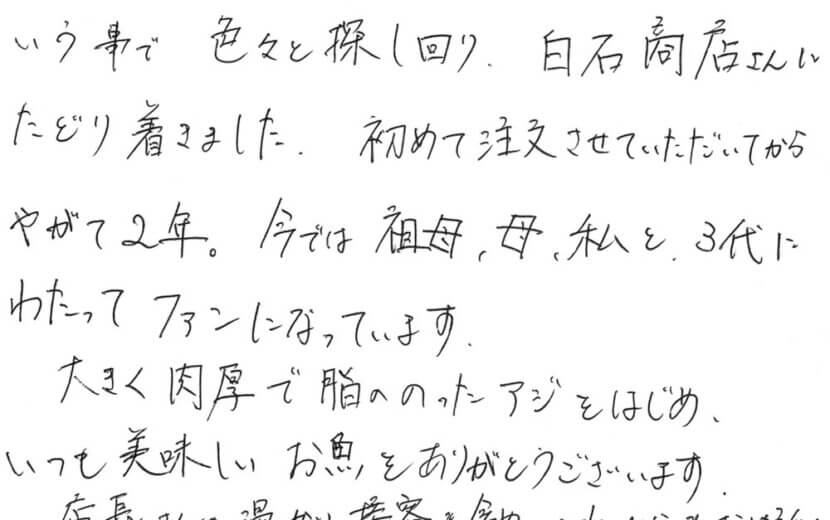 いう事で 色々と探し回り、白石商店さんに
たどり着きました。初めて注文させていただいてから
やがて2年。今では祖母、母、私と、3代に
わたってファンになっています。
大きく肉厚で脂ののったアジをはじめ、
いつも美味しいお魚をありがとうございます。
店長さんの温かい接客を含め